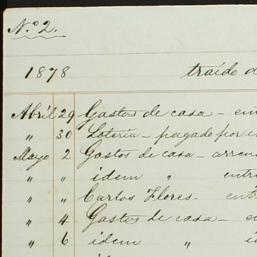 Nº 2.
1878 traide a
Abril 29 Gastos de casa – en
" 30 Loteria – pagado por
Mayo 2 Gastos de casa – arren
" " idem " entr
" " Carlos Flores. ent
" 4 Gastos de casa – e
" 6 idem "